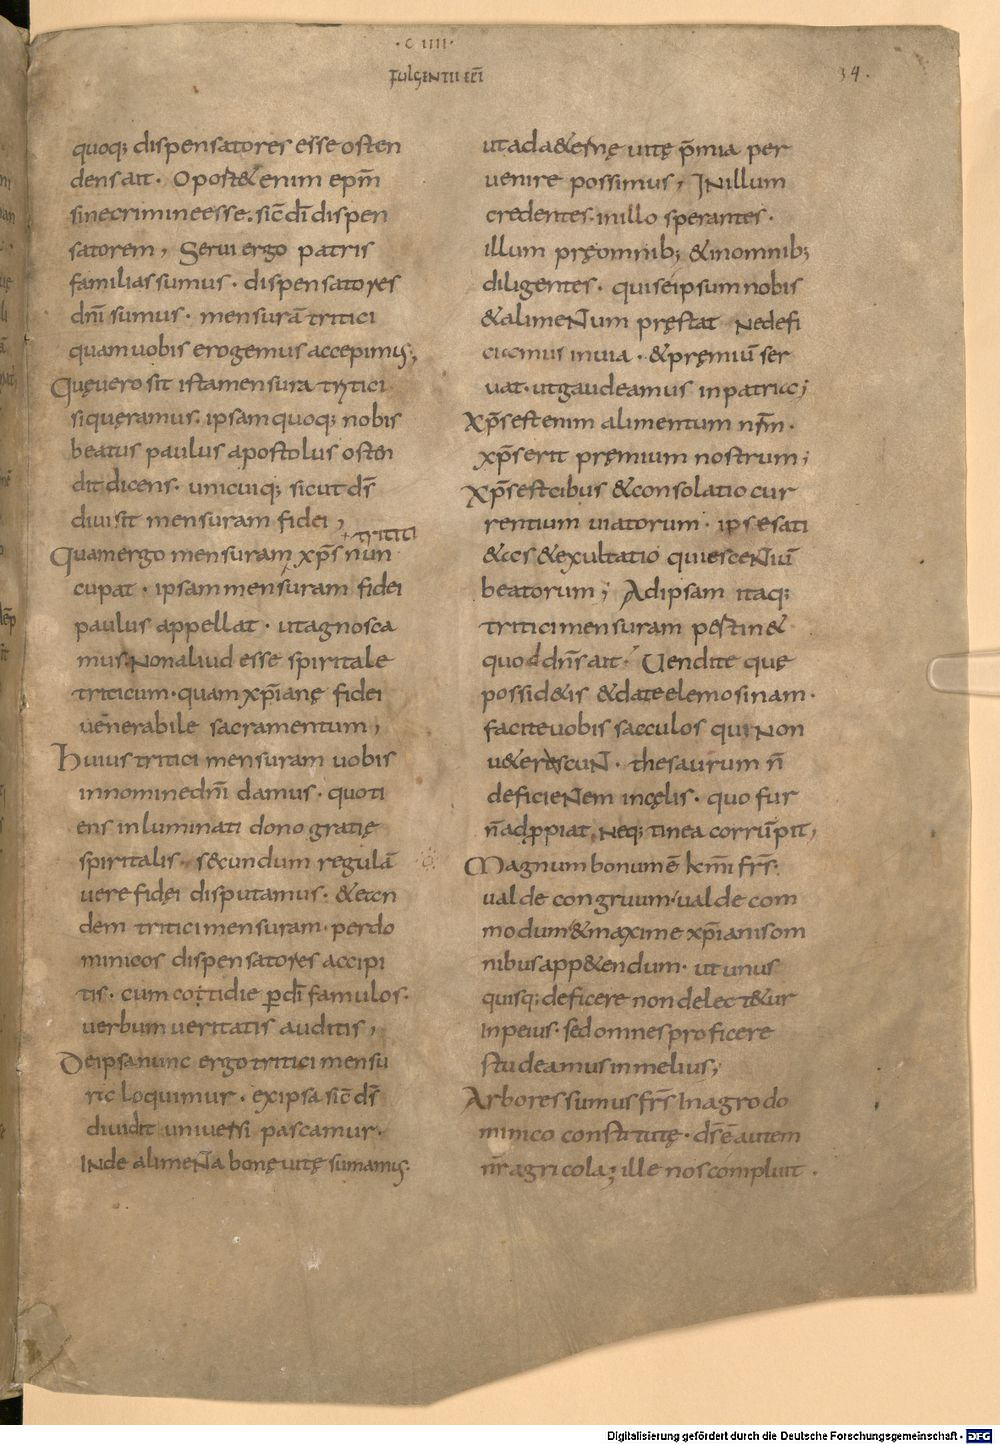 · C IIII ·
FULGENTII EP̄I
34.
quoq; dispensatores esse osten
dens ait · Oportet enim ep̄m
sine crimine esse · sic̄ dī dispen
satorem, Serui ergo patris
familias sumus · dispensatores
dn̄i sumus · mensurā tritici
quam uobis erogemus accepimus;
Quę uero sit ista mensura tritici
si queramus · ipsam quoq; nobis
beatus paulus apostolus osten
dit dicens · unicuiq; sicut ds̄
diuisit mensuram fidei,
tritici
Quam ergo mensuram xp̄s nun
cupat · ipsam mensuram fidei
paulus appellat · ut agnosca
mus · Non aliud esse spiritale
triticum · quam xp̄ianę fidei
uenerabile sacramentum,
Huius tritici mensuram uobis
in nomine dn̄i damus · quoti
ens inluminati dono gratię
spiritalis · secundum regulā
uere fidęi disputamus · & ean
dem tritici mensuram · per do
minicos dispensatores accipi
tis · cum cottidie ꝑ dī famulos ·
uerbum ueritatis auditis,
De ipsa nunc ergo tritici mensu
ra loquimur · ex ipsa sic̄ ds̄
diuidit uniuersi pascamur ·
INde alimeNta bonę uitę sumamus ·
ut ad aeternę uitę p̄mia per
uenire possimus, IN illum
credentes · in illo sperantes ·
illum pręomnib; & in omnib;
diligentes · qui seipsum nobis
& alimeNtum pręstat Ne defi
ciamus in uia · & pręmiū ser
uat · ut gaudeamus in patria;
Xp̄s est enim alimentum nr̄m ·
xp̄s erit pręmium nostrum;
Xp̄s est cibus & consolatio cur
rentium uiatorum · ipse sati
etas & exultatio quiesceNtiū
beatorum; Ad ipsam itaq;
tritici mensuram pertinet
quod dn̄s ait · Uendite quę
possidetis & date elemosinam ·
facite uobis sacculos qui Non
ueterescuNt · thesaurum n̄
deficieNtem in cęlis · quo fur
n̄ adpropiat · Neq; tinea corrūpit,
Magnum bonum ē km̄i frs̄ ·
ualde congruum · ualde com
modum & maxime xp̄ianis om
nibus appetendum · ut unus
quisq; deficere non delectetur
in peius · sed omnes proficere
studeamus in melius;
Arbores sumus frs̄ In agro do
minico constitutę · ds̄ ē autem
nr̄ agricola; ille nos compluit ·
Digitalisierung gefördert durch die Deutsche Forschungsgemeinschaft · DFG